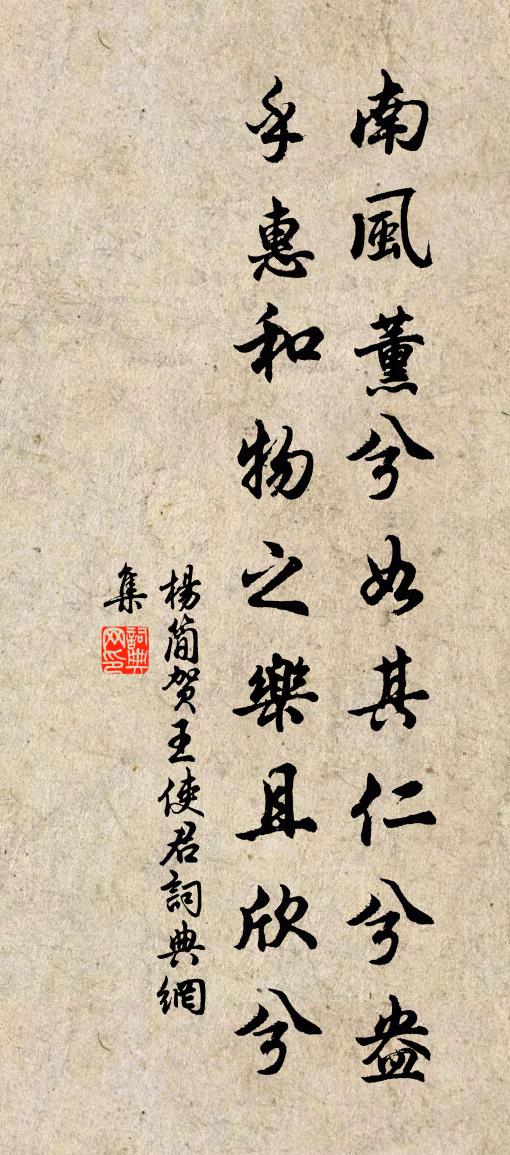 南風薰兮如其仁兮盎
乎惠和物之樂且欣兮
楊简贺王使君詞典網
集
詞典网印